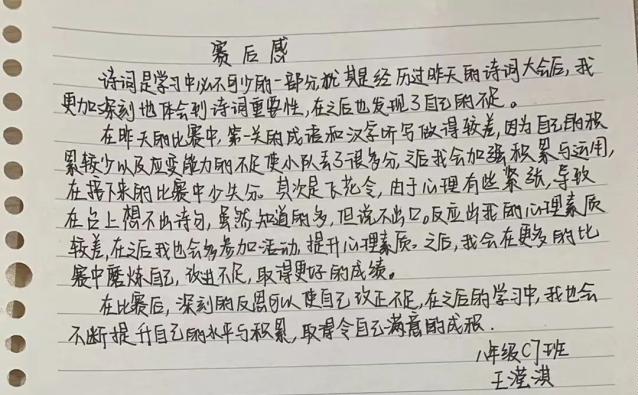 赛后感
诗词是学习中必不可少的一部分,尤其是经历过昨天的诗词大会后,我
更加深刻地体会到诗词重要性,在之后也发现了自己的不足。
在昨天的比赛中,第一关的成语和汉字听写做得较差,因为自己的积
累较少以及应变能力的不足使小队丢了很多分,之后我会加强积累与运用,
在接下来的比赛中少失分。其次是飞花令,由于心理有些紧张,导致
在台上想不出诗句,虽然知道的多,但说不出口。反应出我的心理素质
较差,在之后我也会多参加活动,提升心理素质。之后,我会在更多的比
赛中磨炼自己,改进不足,取得更好的成绩。
在比赛后,深刻的反思可以使自己改正不足,在之后的学习中,我也会
不断提升自己的水平与积累,取得令自己满意的成积.
八年级C7班
王滢淇